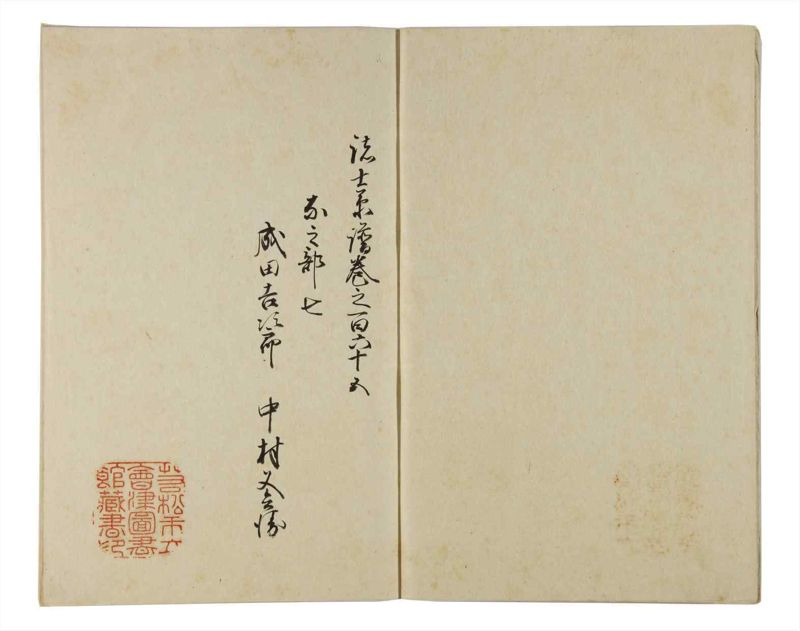 諸士系譜巻之百六十五
な之部 七
成田吉次郎 中村
若松市立
會津圖書
館藏書印